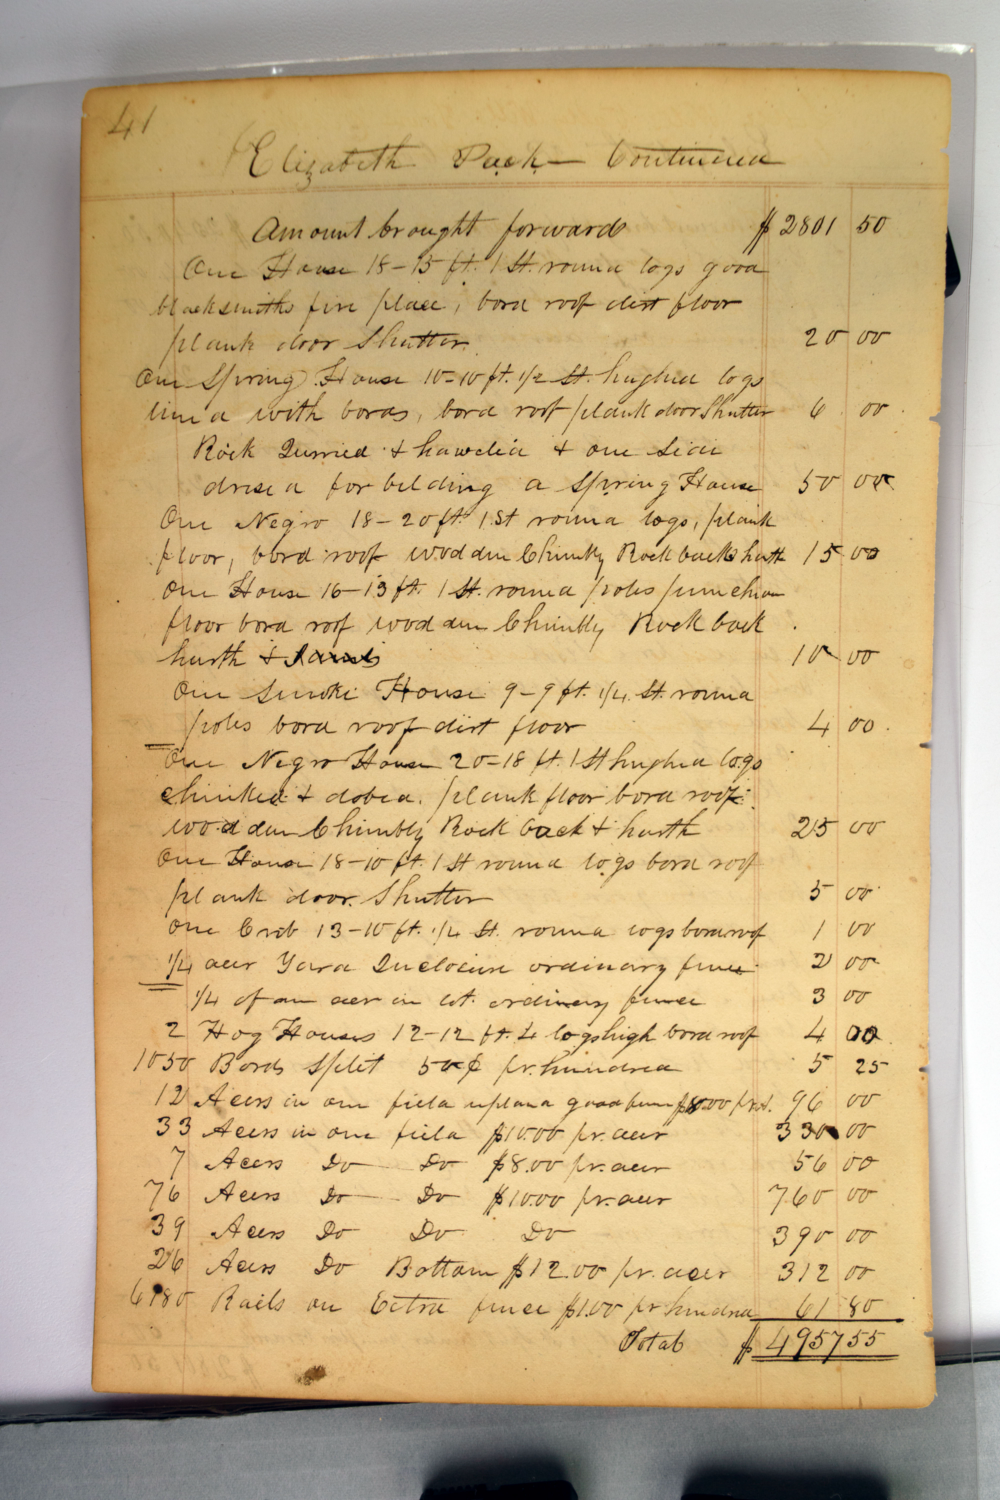 41
Elizabeth Pack — Continued
Amount brought forward $ 2801 50
One House 18–15 ft. 1 St. round logs good
blacksmiths fire place, bord roof dirt floor
plank door Shutter. 20 00
One Spring House 10=10 ft. 1/2 St. hughed logs
lined with bords, bord roof plank door Shutter 6 00
Rock Qurried & hawled & one Side
dresed for bilding a Spring House 50 00
One Negro 18–20 ft. 1 St round logs, plank
floor, bord roof wooden Chimbly Rock back & hurth 15 00
One House 16–13 ft. 1 St. round poles punchion
floor bord roof wooden Chimbly Rock back
hurth & 10 00
One Smoke House 9–9 ft. 1/4 St. round
poles bord roof dirt floor 4 00
One Negro House 20=18 ft. 1 St hughed logs
chinked & dobed, plank floor bord roof
wooden Chimbly Rock back & hurth 25 00
One House 18–10 ft. 1 St round logs bord roof
plank door Shutter 5 00
One Crib 13–10 ft. 1/4 St. round logs bord roof 1 00
1/4 acer Yard Inclosure ordinary fence 2 00
1/4 of an acer in lot. ordinery fence 3 00
2 Hog Houses 12–12 ft. 4 logs high bord roof 4 00
1050 Bords Split 50¢ pr. hundred 5 25
12 Acers in one field upland good fence $8.00 pr. 96 00
33 Acers in one field $10.00 pr. acer 330 00
7 Acers Do Do $8.00 pr. acer 56 00
76 Acers Do Do $10.00 pr. acer 760 00
39 Acers Do Do Do 390 00
26 Acers Do Bottom $12.00 pr. acer 312 00
6180 Rails on Extra fence $1.00 pr hundred 61 80
Total $ 4957 55